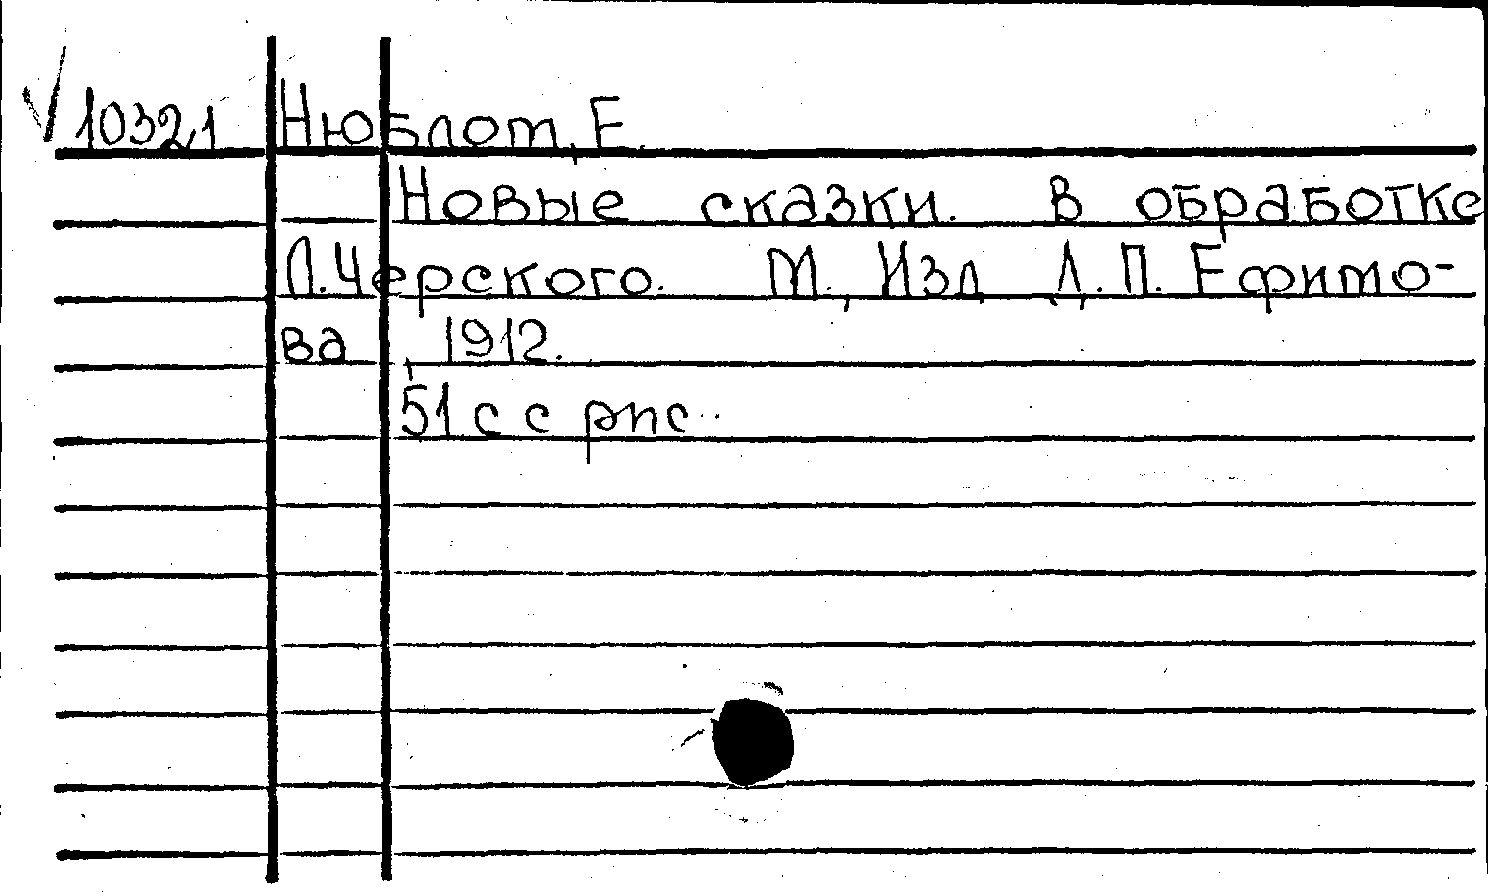 10321 Нюблот, Е.
Новые сказки. В обработке
Л. Черского. М., Изд. Л. П. Ефимо-
ва, 1912.
51 с с рис.